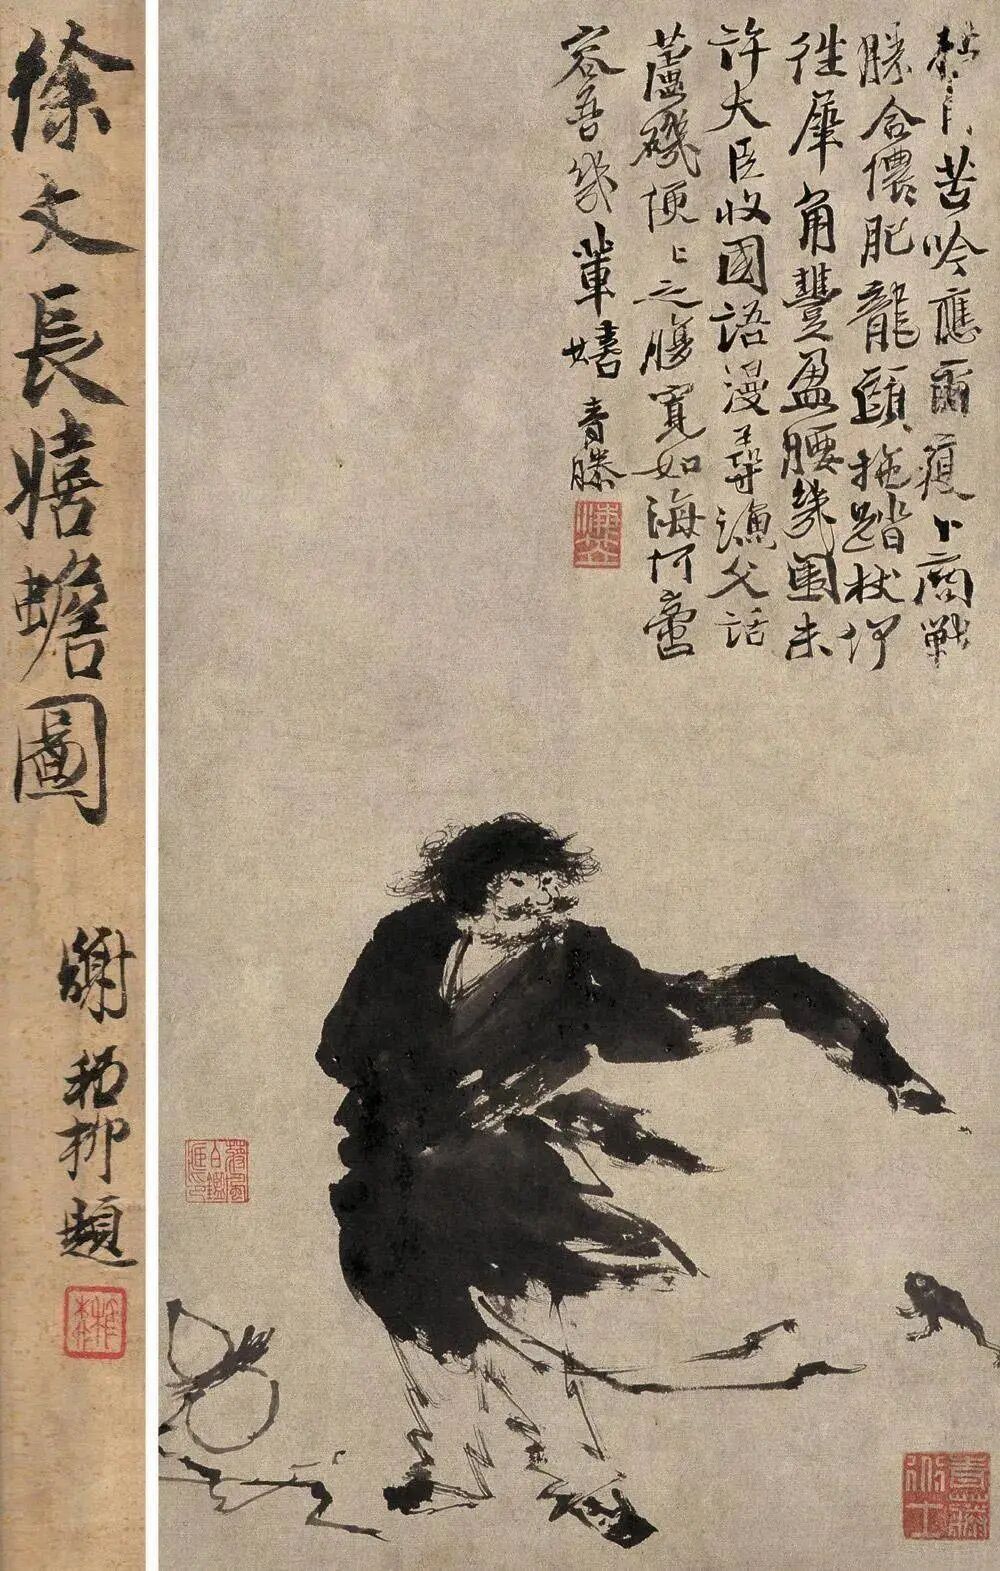 苦吟應爾瘦卜商戰
勝合儂肥龍頭拖踏杖
往犀角豐盈腰幾圍未
許大臣收國語漫尋漁父話
蘆磯便〻之腹寬如海何啻
容吾幾輩嬉 青藤
徐文長嬉蟾圖
謝稚柳題
稚柳